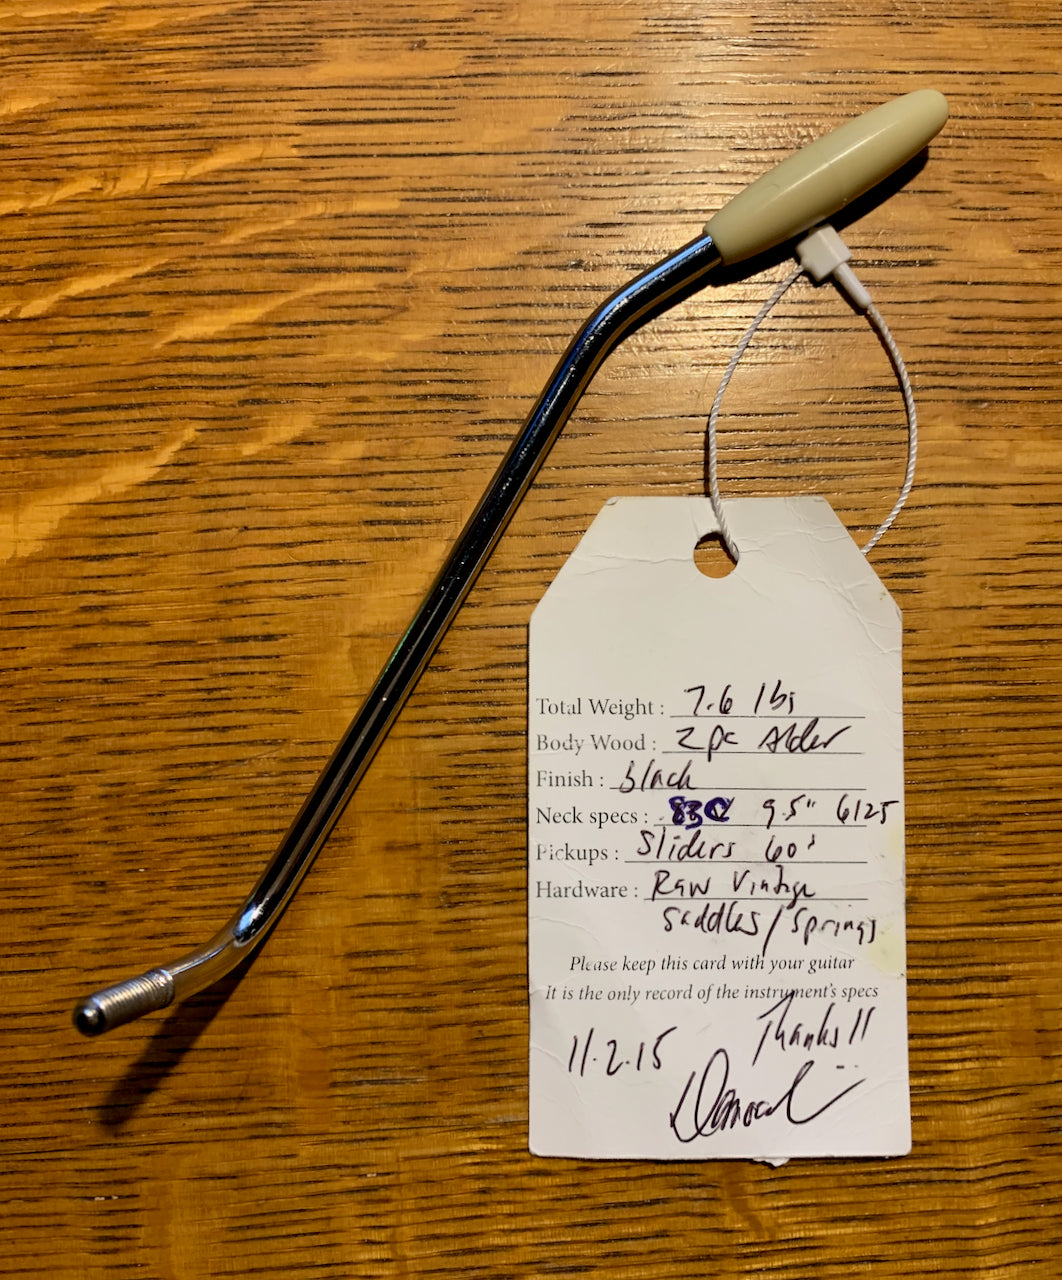 Total Weight : 7.6 lbs
Body Wood : 2 pc Alder
Finish : black
Neck specs : .83C 9.5" 6125
Pickups : Sliders 60's
Hardware : Raw Vintage
Saddles/Springs
Please keep this card with your guitar
It is the only record of the instrument's specs
Thanks!!
11.2.15